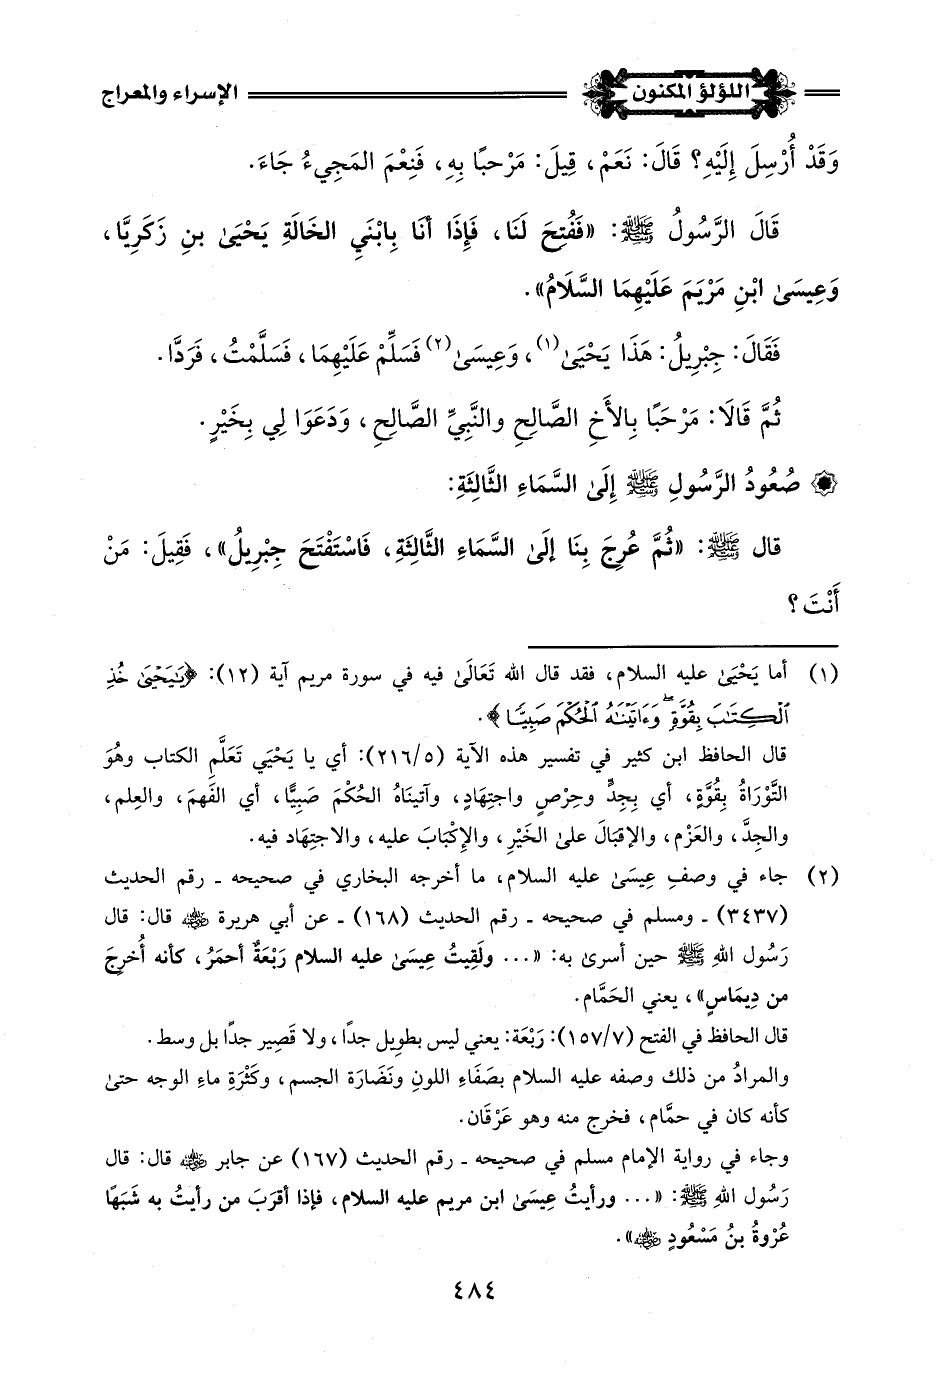 اللؤلؤ المكنون
الإسراء والمعراج
وَقَدْ أُرْسِلَ إِلَيْهِ؟ قَالَ: نَعَمْ، قِيلَ: مَرْحبًا بِهِ، فَنِعْمَ المَجِيءُ جَاءَ.
قَالَ الرَّسُولُ ﷺ: «فَفُتِحَ لَنَا، فَإِذَا أَنَا بِابْنَيِ الخَالَةِ يَحْيَىٰ بنِ زَكَرِيَّا،
وَعِيسَىٰ ابْنِ مَرْيَمَ عَلَيْهِمَا السَّلَامُ».
فَقَالَ: جِبْرِيلُ: هَذَا يَحْيَىٰ(١)، وَعِيسَىٰ(٢) فَسَلِّمْ عَلَيْهِمَا، فَسَلَّمْتُ، فَرَدَّا.
ثُمَّ قَالَا: مَرْحَبًا بِالأَخِ الصَّالِحِ والنَّبِيِّ الصَّالِحِ، وَدَعَوَا لِي بِخَيْرٍ.
۞ صُعُودُ الرَّسُولِ ﷺ إِلَىٰ السَّمَاءِ الثَّالِثَةِ:
قال ﷺ: «ثُمَّ عُرِجَ بِنَا إلَىٰ السَّمَاءِ الثَّالِثَةِ، فَاسْتَفْتَحَ جِبْرِيلُ»، فَقِيلَ: مَنْ
أَنْتَ؟
(١) أما يَحْيَىٰ عليه السلام، فقد قال الله تَعَالَىٰ فيه في سورة مريم آية (١٢): ﴿يَٰيَحۡيَىٰ خُذِ
ٱلۡكِتَٰبَ بِقُوَّةٖۖ وَءَاتَيۡنَٰهُ ٱلۡحُكۡمَ صَبِيّٗا﴾.
قال الحافظ ابن كثير في تفسير هذه الآية (٢١٦/٥): أي يا يَحْيَي تَعَلَّمِ الكتاب وهُوَ
التَّوْرَاةُ بِقُوَّةٍ، أي بِجِدٍّ وحِرْصٍ واجتِهَادٍ، وآتيناهُ الحُكْمَ صَبِيًّا، أي الفَهمَ، والعِلم،
والجِدَّ، والعَزْم، والإقبَالَ علىٰ الخَيْرِ، والإكْبَابَ عليه، والاجتِهَاد فيه.
(٢) جاء في وصفِ عِيسَىٰ عليه السلام، ما أخرجه البخاري في صحيحه - رقم الحديث
(٣٤٣٧) - ومسلم في صحيحه - رقم الحديث (١٦٨) - عن أبي هريرة رضي الله عنه قال: قال
رَسُول اللهِ ﷺ حين أسرىٰ به: «... ولَقِيتُ عِيسَىٰ عليه السلام رَبْعَةٌ أحمَرُ، كأنه أُخرِجَ
من دِيمَاسٍ»، يعني الحَمَّام.
قال الحافظ في الفتح (١٥٧/٧): رَبْعَة: يعني ليس بطويل جدًا، ولا قَصِير جدًا بل وسط.
والمرادُ من ذلك وصفه عليه السلام بصَفَاءِ اللونِ ونَضَارَة الجسم، وكَثْرَةِ ماءِ الوجه حتىٰ
كأنه كان في حمَّام، فخرج منه وهو عَرْقَان.
وجاء في رواية الإمام مسلم في صحيحه - رقم الحديث (١٦٧) عن جابر رضي الله عنه قال: قال
رَسُول اللهِ ﷺ: «... ورأيتُ عِيسَىٰ ابن مريم عليه السلام، فإذا أقرَبَ من رأيتُ به شَبَهًا
عُرْوةُ بنُ مَسْعُودٍ رضي الله عنه».
٤٨٤